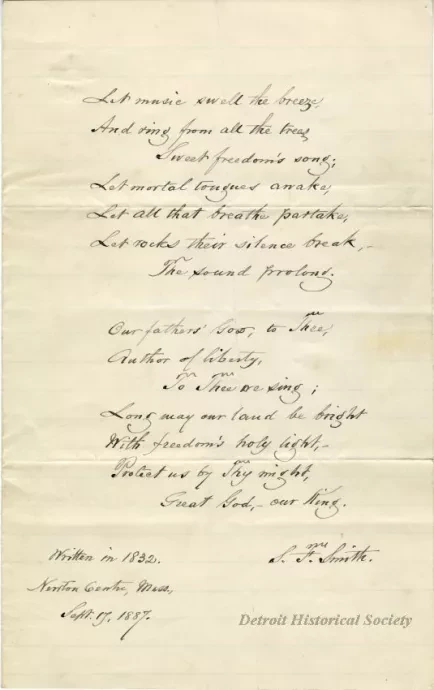 Let music swell the breeze,
And ring from all the trees
Sweet freedom's song;
Let mortal tongues awake,
Let all that breathe partake,
Let rocks their silence break, –
The sound prolong.
Our fathers' God, to Thee,
Author of liberty,
To Thee we sing;
Long may our land be bright
With freedom's holy light, –
Protect us by Thy might,
Great God, – our King.
Written in 1832.
S. F. Smith.
Newton Centre, Mass,
Sept. 17, 1887.
Detroit Historical Society